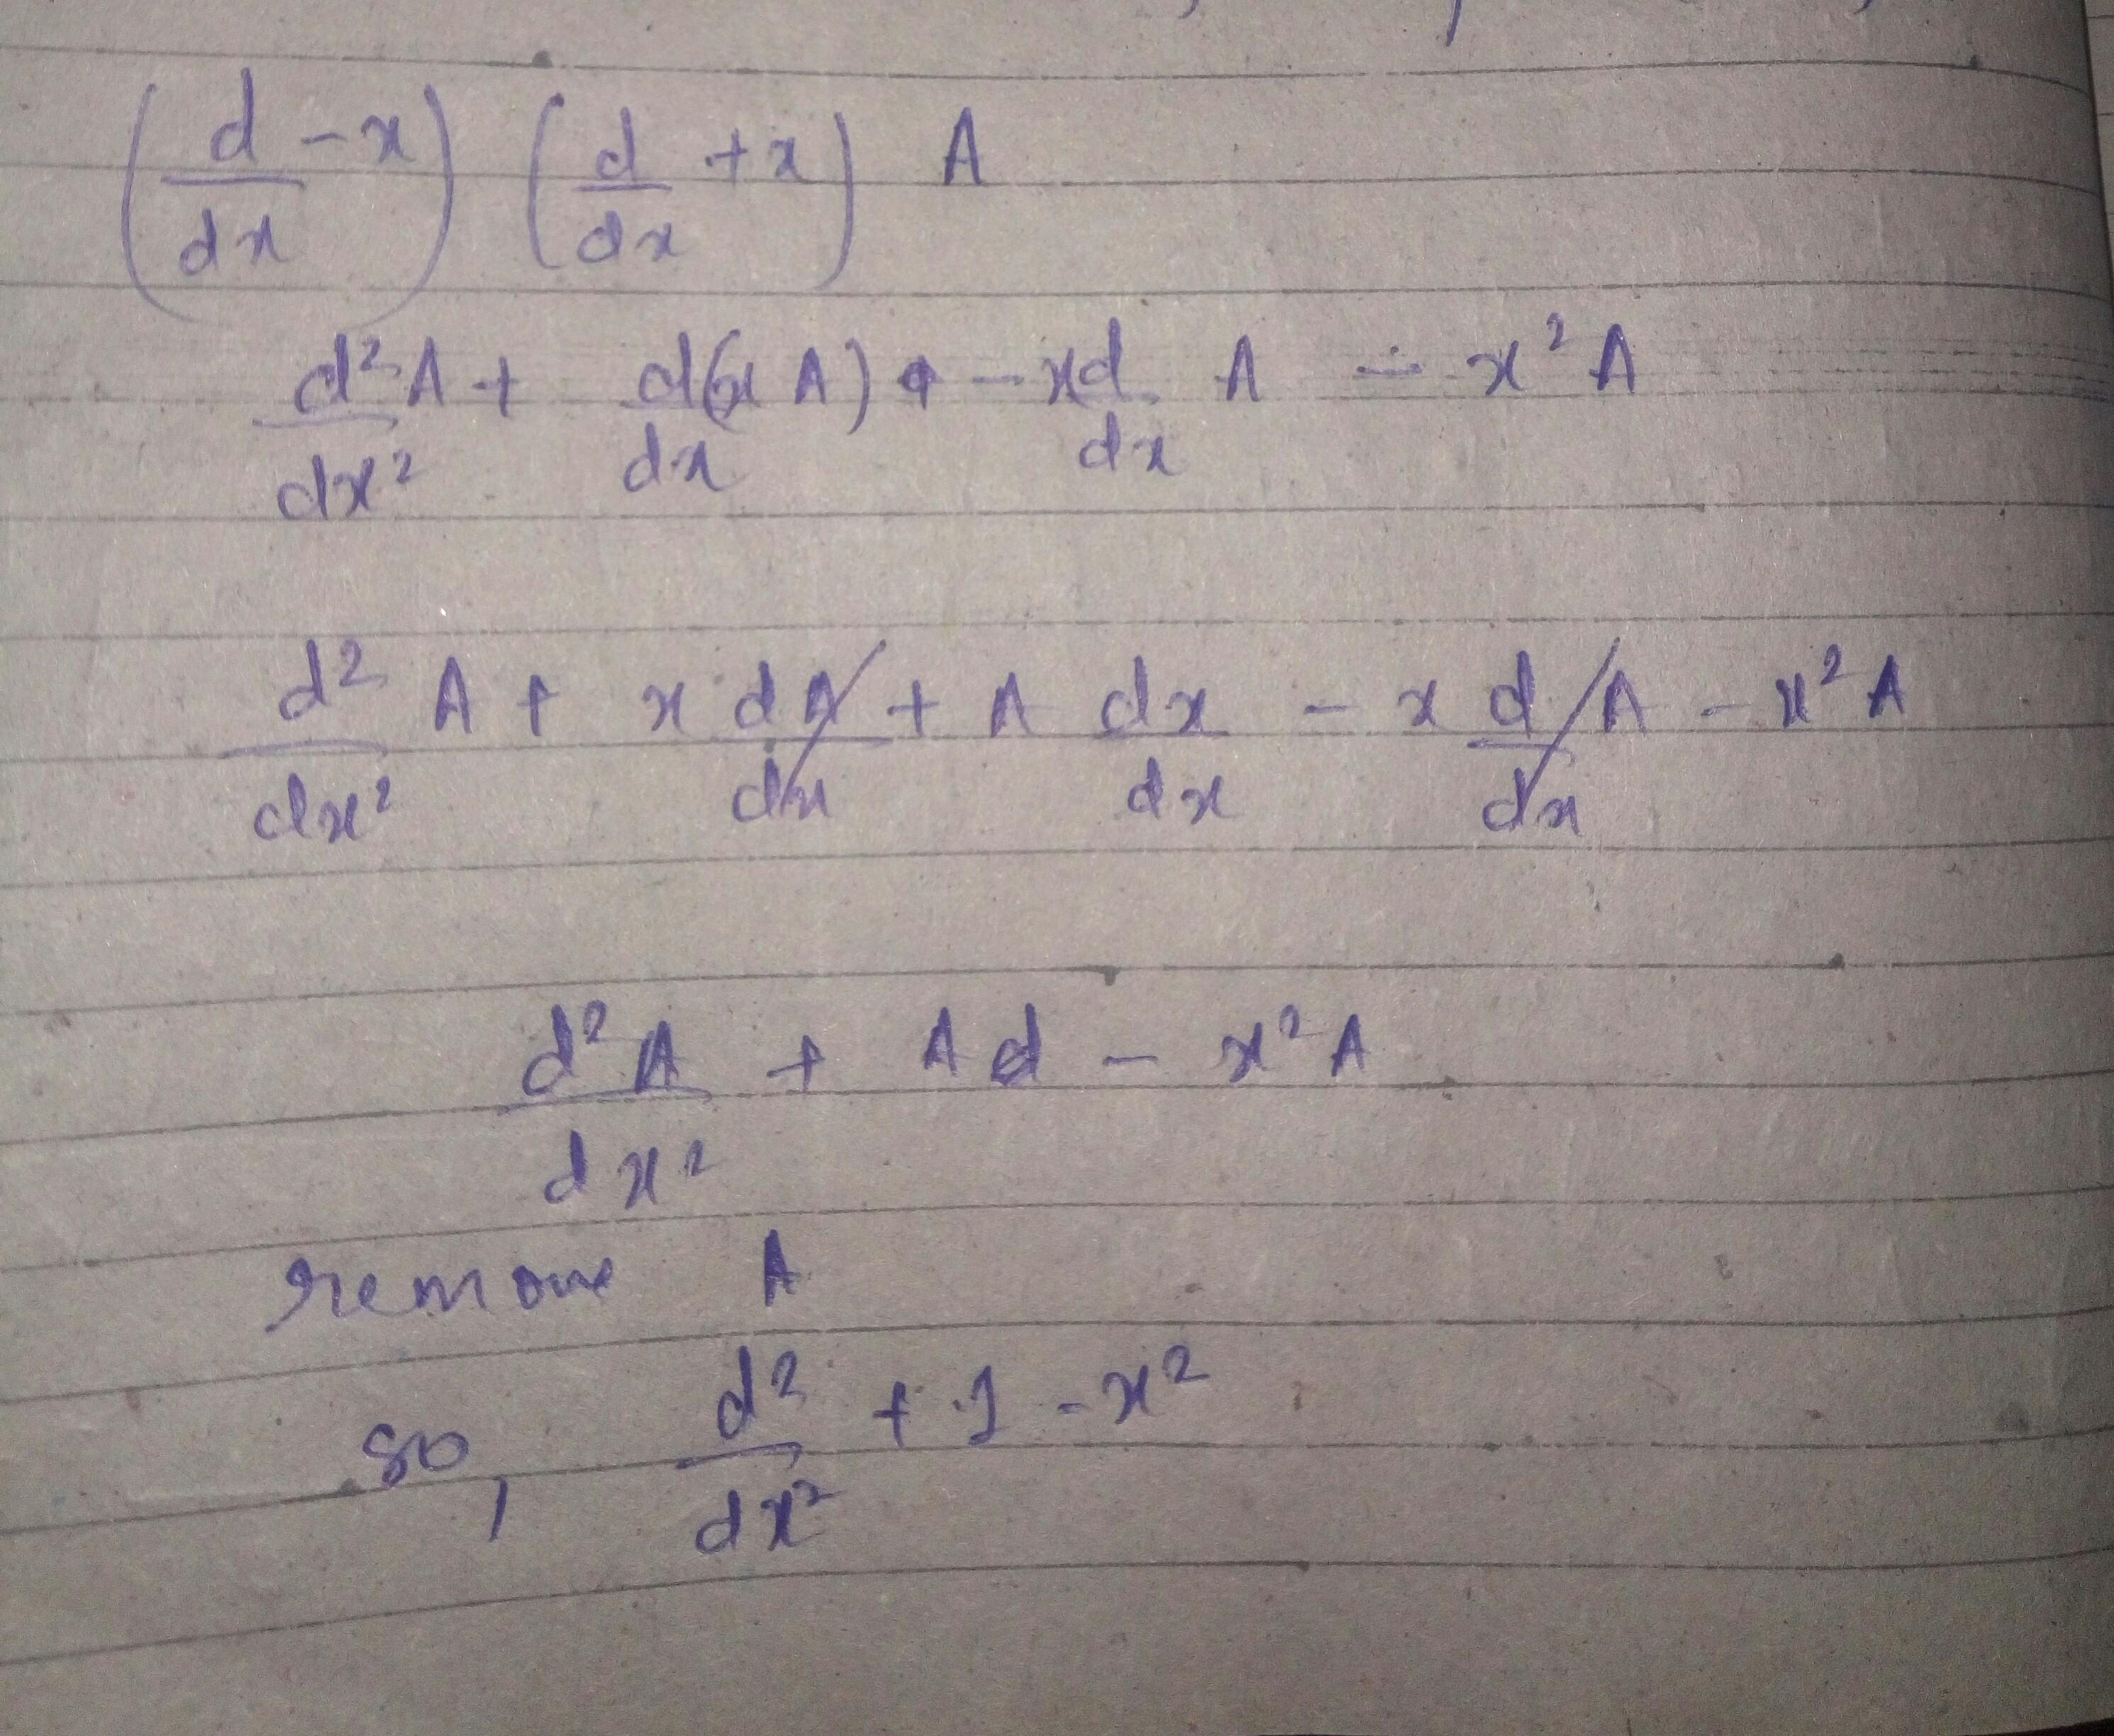 (d/dx - x) (d/dx + x) A
d²A/dx² + d(xA)/dx - xd/dx A - x²A
d²/dx² A + x dA/dx + A dx/dx - x d/dx A - x²A
d²A/dx² + A d - x²A
remove A
so, d²/dx² + 1 - x²